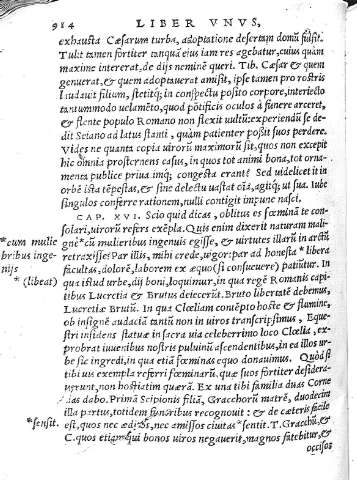 984 LIBER VNVS,
exhausta Cæsarum turba, adoptatione desertam domũ fulsit.
Tulit tamen fortiter tanquã eius iam res ageretur, cuius quàm
maxime intererat, de dijs nemine queri. Tib. Cæsar & quem
genuerat, & quem adoptauerat amisit, ipse tamen pro rostris
laudauit filium, stetitq; in conspectu posito corpore, interiecto
tantummodo uelamẽto, quod põtificis oculos à funere arceret,
& flente populo Romano non flexit uultũ: experiendũ se de-
dit Seiano ad latus stanti, quàm patienter possit suos perdere.
Vides ne quanta copia uirorũ maximorũ sit, quos non excepit
hic omnia prosternens casus, in quos tot animi bona, tot orna-
menta publice priua imq; congesta erant? Sed uidelicet it in
orbẽ ista tẽpestas, & sine delectu uastat oĩa, agitq; ut sua. Iube
singulos conferre rationem, nulli contigit impune nasci.
CAP. XVI. Scio quid dicas, oblitus es fœminã te con-
solari, uirorũ refers exẽpla. Quis enim dixerit naturam mali-
*cum mulie
gnè *cũ mulieribus ingenijs egisse, & uirtutes illarũ in arctũ
bribus inge-
retraxisse? Par illis, mihi crede, uigor: par ad honesta * libera
nijs
facultas, dolorẽ, laborem ex æquo (si consueuere) patiũtur. In
*(libeat)
qua istud urbe, dij boni, loquimur, in qua regẽ Romanis capiti
bus Lucretia & Brutus deiecerũt. Bruto libertatẽ debemus,
Lucretiæ Brutũ. In qua Clœliam contẽpto hoste & flumine,
ob insignẽ audaciã tantũ non in uiros transcripsimus, Eque-
stri insidens statuæ in sacra uia celeberrimo loco Clœlia, ex-
probrat iuuenibus nostris puluinũ ascendentibus, in ea illos ur-
be sic ingredi, in qua etiã fœminas equo donauimus. Quòd si
tibi uis exempla referri fœminarũ, quæ suos fortiter desidera-
uerunt, non hostiatim quærã. Ex una tibi familia duas Corne
lias dabo. Primã Scipionis filiã, Gracchorũ matrẽ, duodecim
illa partus, totidem funeribus recognouit: & de cæteris facile
*sensit.
est, quos nec æditos, nec amissos ciuitas *sentit. T. Gracchũ, &
C. quos etiamqui bonos uiros negauerit, magnos fatebitur, &
occisos